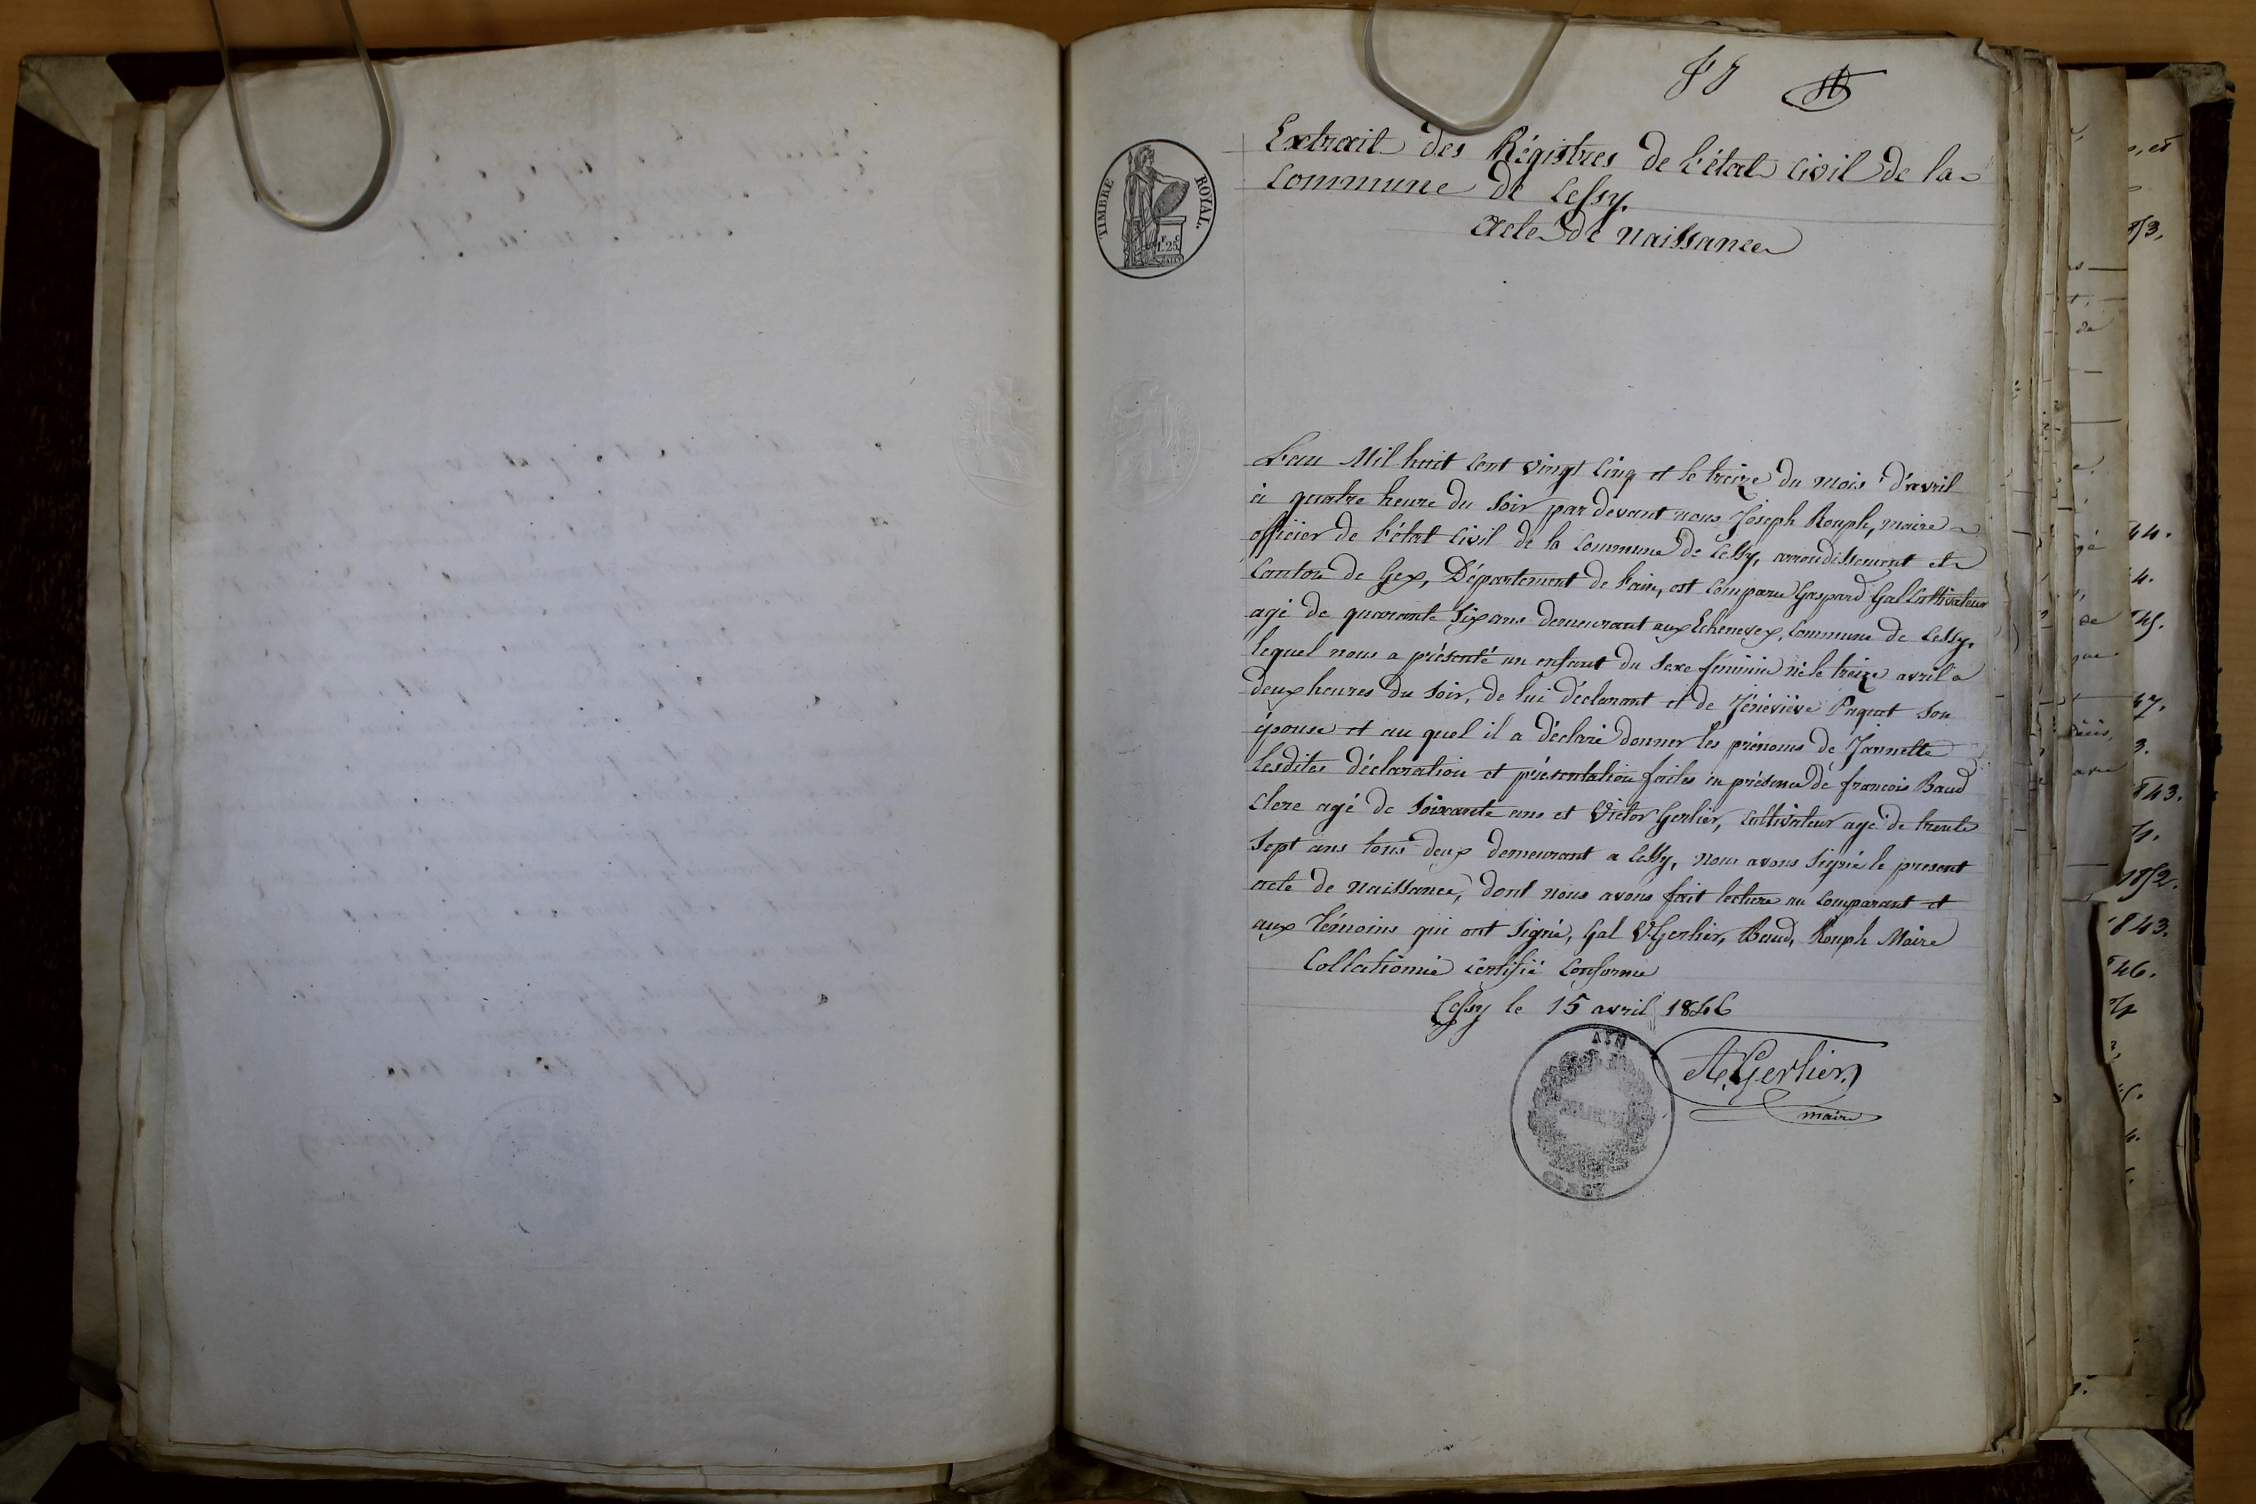 TIMBRE ROYAL.
1. 25
Extrait des Régistres de l'état Civil de la
Commune de Cessy.
Acte de Naissance
L'an Mil huit Cent vingt Cinq et le treize du mois d'avril
à quatre heure du Soir par devant nous Joseph Rouph, maire
officier de l'état Civil de la Commune de Cessy, arrondissement et
Canton de Gex, Département de l'ain, est Comparu Gaspard Gal Cultivateur
agé de quarante Six ans demeurant aux Echenevex, Commune de Cessy,
lequel nous a présenté un enfant du Sexe féminin né le treize avril a
deux heures du Soir, de lui déclarant et de Jéneviève Paquet Son
épouse et au quel il a déclaré donner les prénoms de Jannette
lesdites déclaration et présentation faites en présence de francois Baud
Clerc agé de Soixante ans et Victor Gerlier, Cultivateur agé de trente
Sept ans tous deux demeurant a Cessy, nous avons Signé le present
acte de naissance, dont nous avons fait lecture au Comparant et
aux témoins qui ont Signé, Gal V.Gerlier, Baud, Rouph Maire
Collationné Certifié Conforme
Cessy le 15 avril 1846
A. Gerlier
maire
AIN
CESSY
44.
843.
1852.
1843.